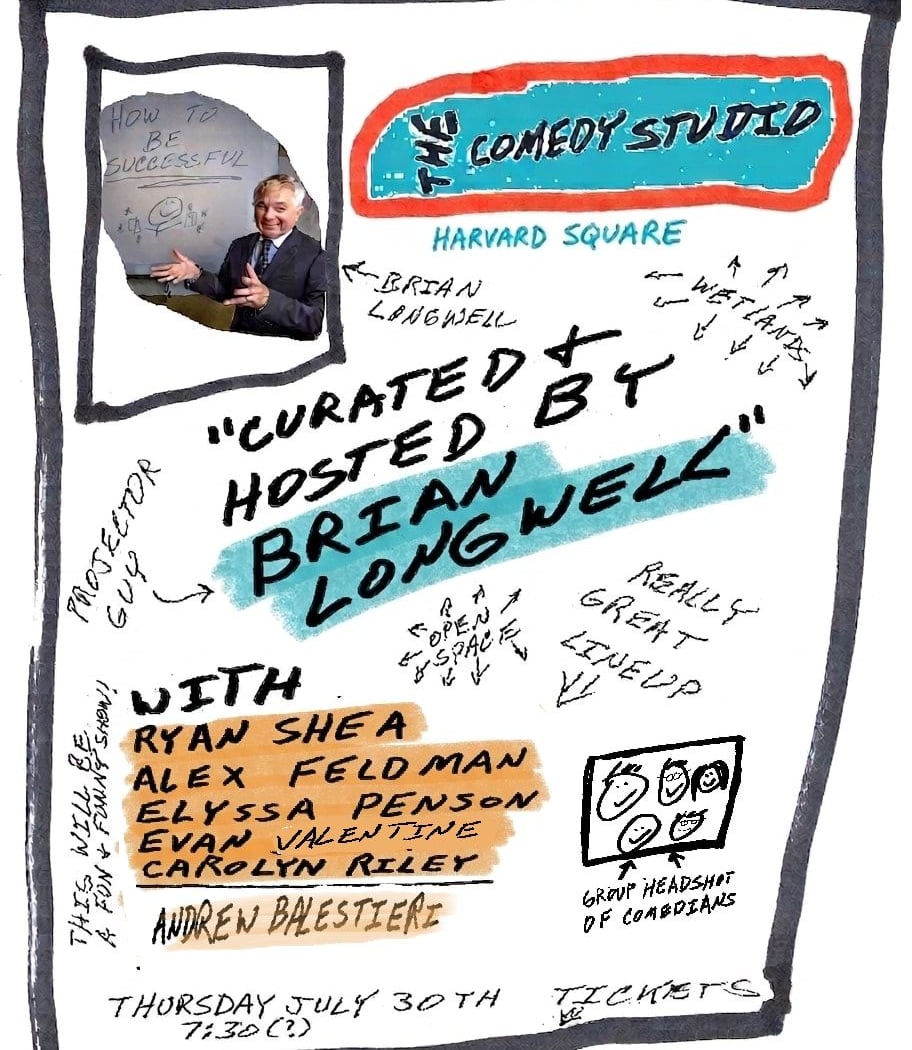 HOW TO
BE
SUCCESSFUL
THE COMEDY STUDIO
HARVARD SQUARE
BRIAN
LONGWELL
WETLANDS
"CURATED +
HOSTED BY
BRIAN
LONGWELL"
PROJECTOR
GUY
OPEN
SPACE
REALLY
GREAT
LINEUP
WITH
RYAN SHEA
ALEX FELDMAN
ELYSSA PENSON
EVAN VALENTINE
CAROLYN RILEY
ANDREW BALESTIERI
THIS WILL BE
A FUN + FUNNY SHOW!
GROUP HEADSHOT
OF COMEDIANS
THURSDAY JULY 30TH
7:30(?)
TICKETS